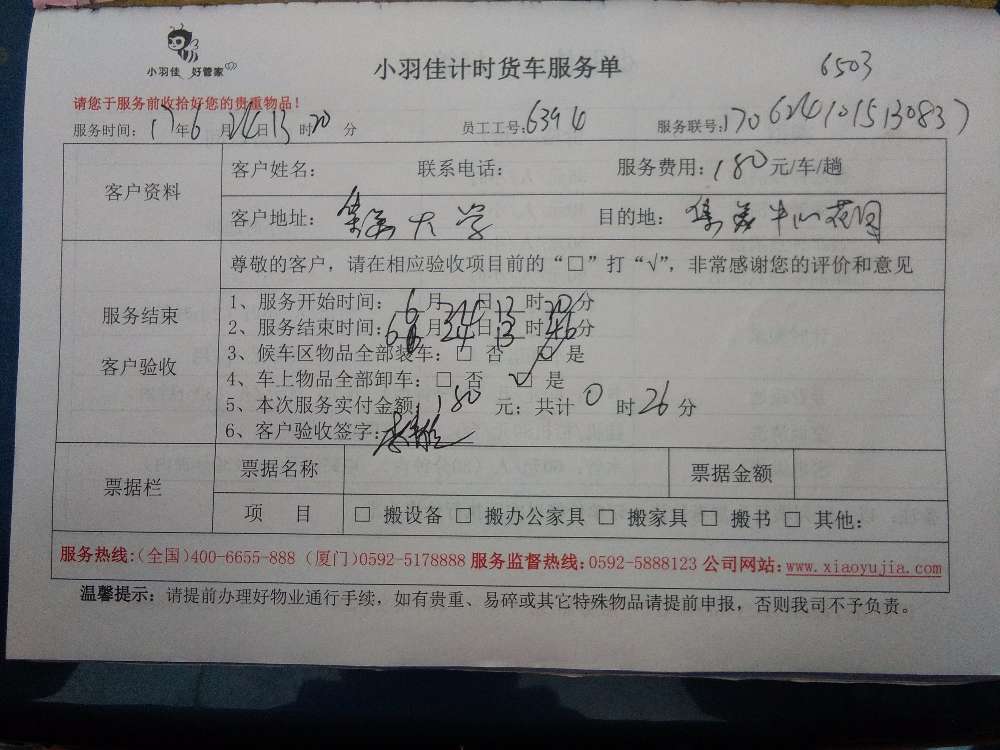 小羽佳 好管家
小羽佳计时货车服务单
6503
请您于服务前收拾好您的贵重物品！
服务时间：17年6月24日13时20分 员工工号：6394 服务联号：1706241015130837
客户资料
客户姓名： 联系电话： 服务费用：180元/车/趟
客户地址：集美大学 目的地：集美中心花园
服务结束
客户验收
尊敬的客户，请在相应验收项目前的“□”打“√”，非常感谢您的评价和意见
1、服务开始时间：6月24日13时20分
2、服务结束时间：6月24日13时46分
3、候车区物品全部装车：□ 否 □ 是
4、车上物品全部卸车：□ 否 □ 是
5、本次服务实付金额：180元；共计0时26分
6、客户验收签字：
票据栏
票据名称 票据金额
项 目 □ 搬设备 □ 搬办公家具 □ 搬家具 □ 搬书 □ 其他：
服务热线：（全国）400-6655-888（厦门）0592-5178888 服务监督热线：0592-5888123 公司网站：www.xiaoyujia.com
温馨提示：请提前办理好物业通行手续，如有贵重、易碎或其它特殊物品请提前申报，否则我司不予负责。